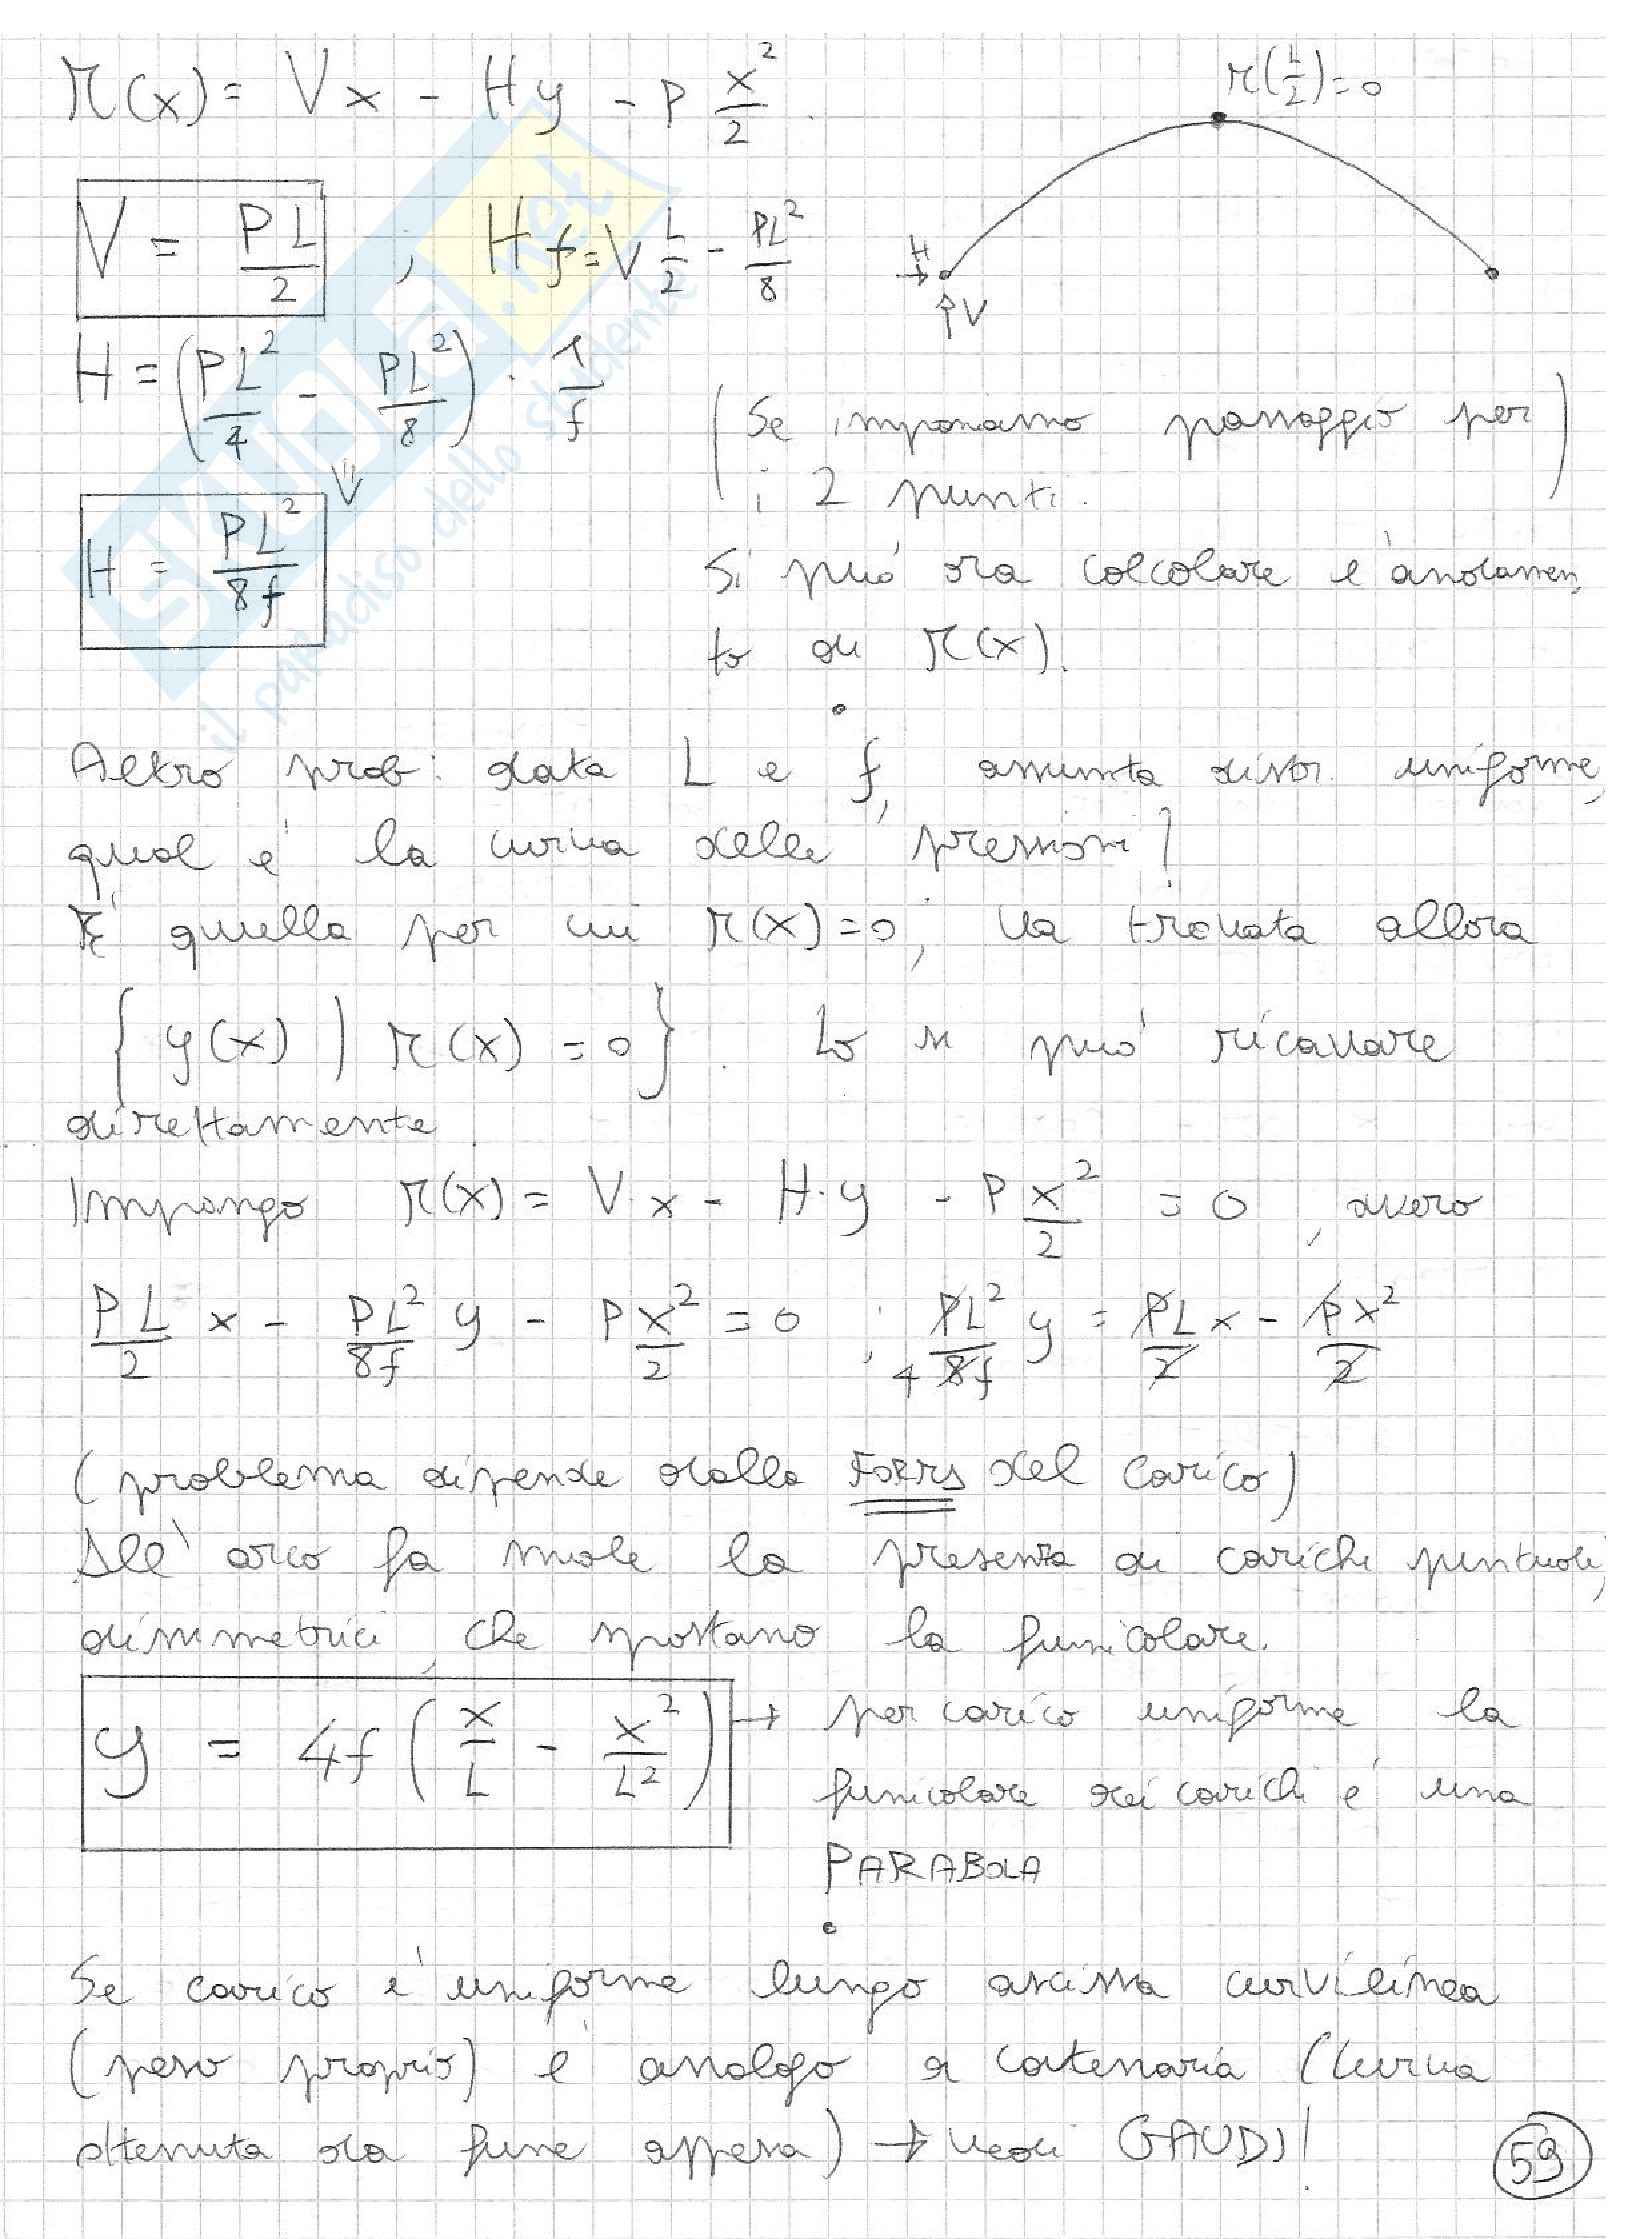 M(x) = Vx - Hy - P x²/2.
M(L/2) = 0
V = PL/2 ; Hf = V L/2 - PL²/8
H
V
H = (PL²/4 - PL²/8) · 1/f
(Se imponiamo passaggio per
i 2 punti.)
H = PL²/8f
Si può ora calcolare l'andamen
to di M(x).
Altro prob: data L e f, assunta distr. uniforme,
qual è la curva delle pressioni?
È quella per cui M(x) = 0; va trovata allora
{y(x) | M(x) = 0}. Lo si può ricavare
direttamente
Impongo M(x) = V·x - H·y - P x²/2 = 0, ovvero
PL/2 x - PL²/8f y - P x²/2 = 0 ; 4 PL²/8f y = PL/2 x - Px²/2
(problema dipende dalla FORMA del carico)
All'arco fa male la presenza di carichi puntuali,
dissimmetrici, che spostano la funicolare.
y = 4f (x/L - x²/L²) → per carico uniforme la
funicolare dei carichi è una
PARABOLA
Se carico è uniforme lungo ascissa curvilinea
(peso proprio) è analogo a catenaria (curva
ottenuta da fune appesa) → vedi GAUDI!
59
STUDIA.net
il paradiso dello studente